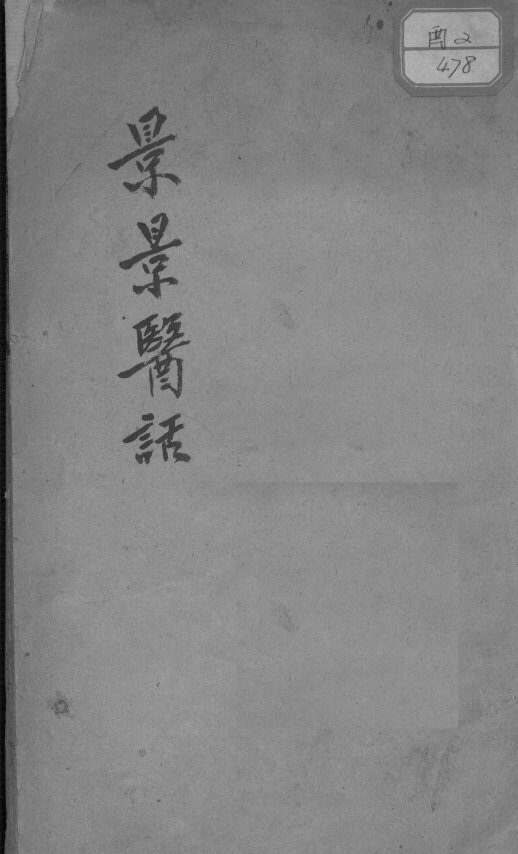 景景醫話
酉2
478